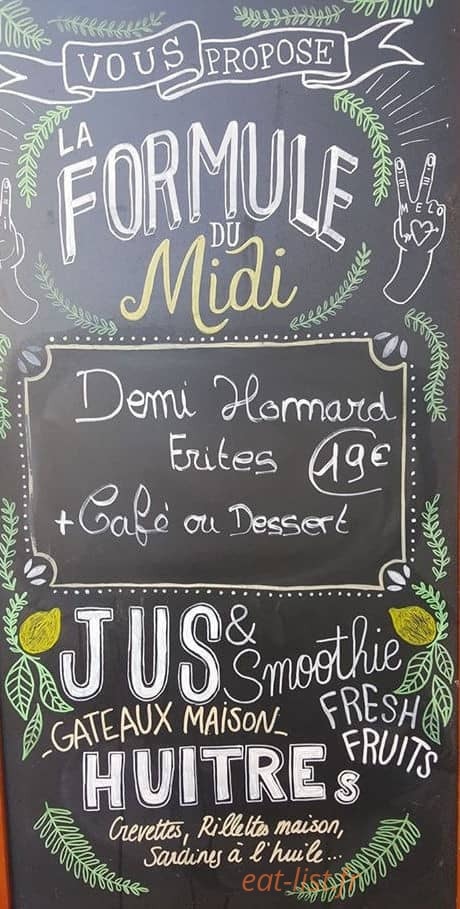 VOUS PROPOSE
LA
FORMULE
DU
Midi
MELO
Demi Homard
Frites 19€
+ Café ou Dessert
JUS & Smoothie
FRESH
FRUITS
-GATEAUX MAISON-
HUITREs
Crevettes, Rillettes maison,
Sardines à l'huile...
eat-list.fr